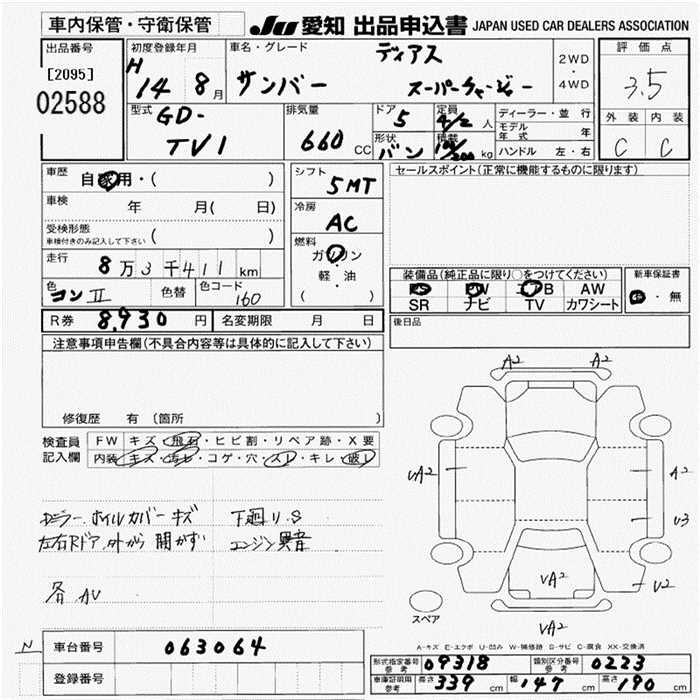 車内保管・守衛保管 JU 愛知 出品申込書 JAPAN USED CAR DEALERS ASSOCIATION
出品番号 初度登録年月 車名・グレード ディアス 2WD・4WD 評価点
[2095] H 14 8月 サンバー スーパーチャージャー 3.5
02588
型式 GD-TV1 排気量 660 CC ドア 5 定員 4/2 人 ディーラー・並行 外装 内装
形状 バン 積載 kg モデル年式 年 C C
ハンドル 左・右
車歴 自家用・( ) シフト 5MT セールスポイント(正常に機能するものに限ります)
車検 年 月( 日) 冷房 AC
受検形態 車検付きのみ記入して下さい ( ) 燃料 ガソリン・軽・油 ( )
走行 8万3千411km
装備品(純正品に限り○をつけてください) 新車保証書
色 コンII 色替 色コード 160 PS PW エアB AW 有・無
SR ナビ TV カワシート
R券 8,930円 名変期限 月 日 後日品
注意事項申告欄(不具合内容等は具体的に記入して下さい)
修復歴 有 (箇所 )
検査員記入欄 FW キズ・飛石・ヒビ割・リペア跡・X要
内装 キズ・汚レ・コゲ・穴・スレ・キレ・破レ
A2 A2
UA2 A2
U3
UA2 U2
UA2
Dミラー、ホイルカバーキズ 下廻り.S
左右Rドア、外から開かず エンジン異音
各AU
スペア
A-キズ E-エクボ U-凹み W-補修跡 S-サビ C-腐食 XX-交換済
N 車台番号 063064
登録番号
形式指定番号 参考 09318 類別区分番号 参考 0223
車庫証明用 参考 長さ 339cm 幅 147cm 高さ 190cm